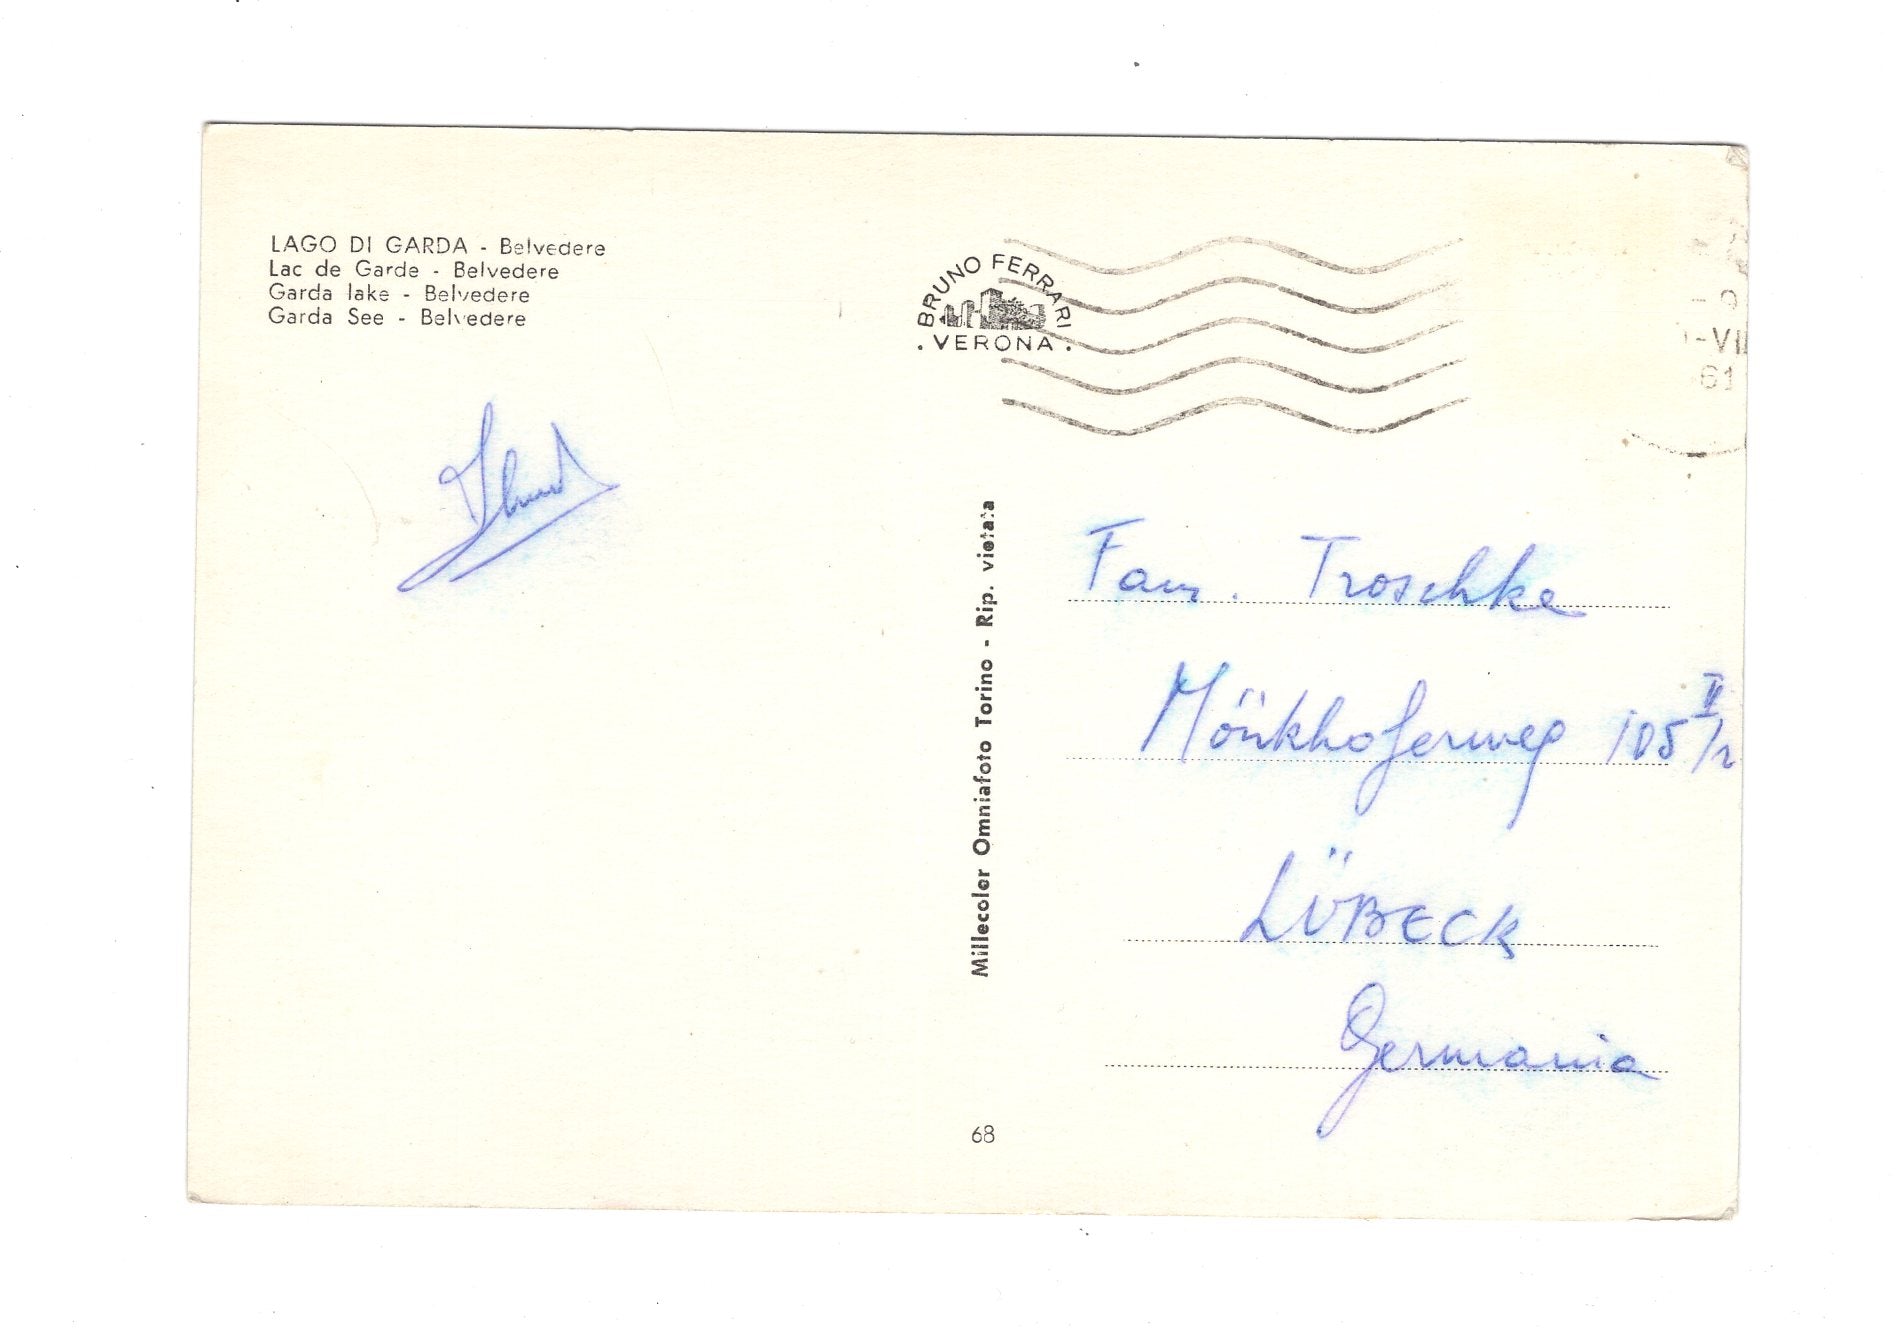 LAGO DI GARDA - Belvedere
Lac de Garde - Belvedere
Garda lake - Belvedere
Garda See - Belvedere
BRUNO FERRARI
. VERONA .
-VII
61
Millecolor Omniafoto Torino - Rip. vietata
Fam. Troschke
Mönkhoferweg 105 II/2
LÜBECK
Germania
68